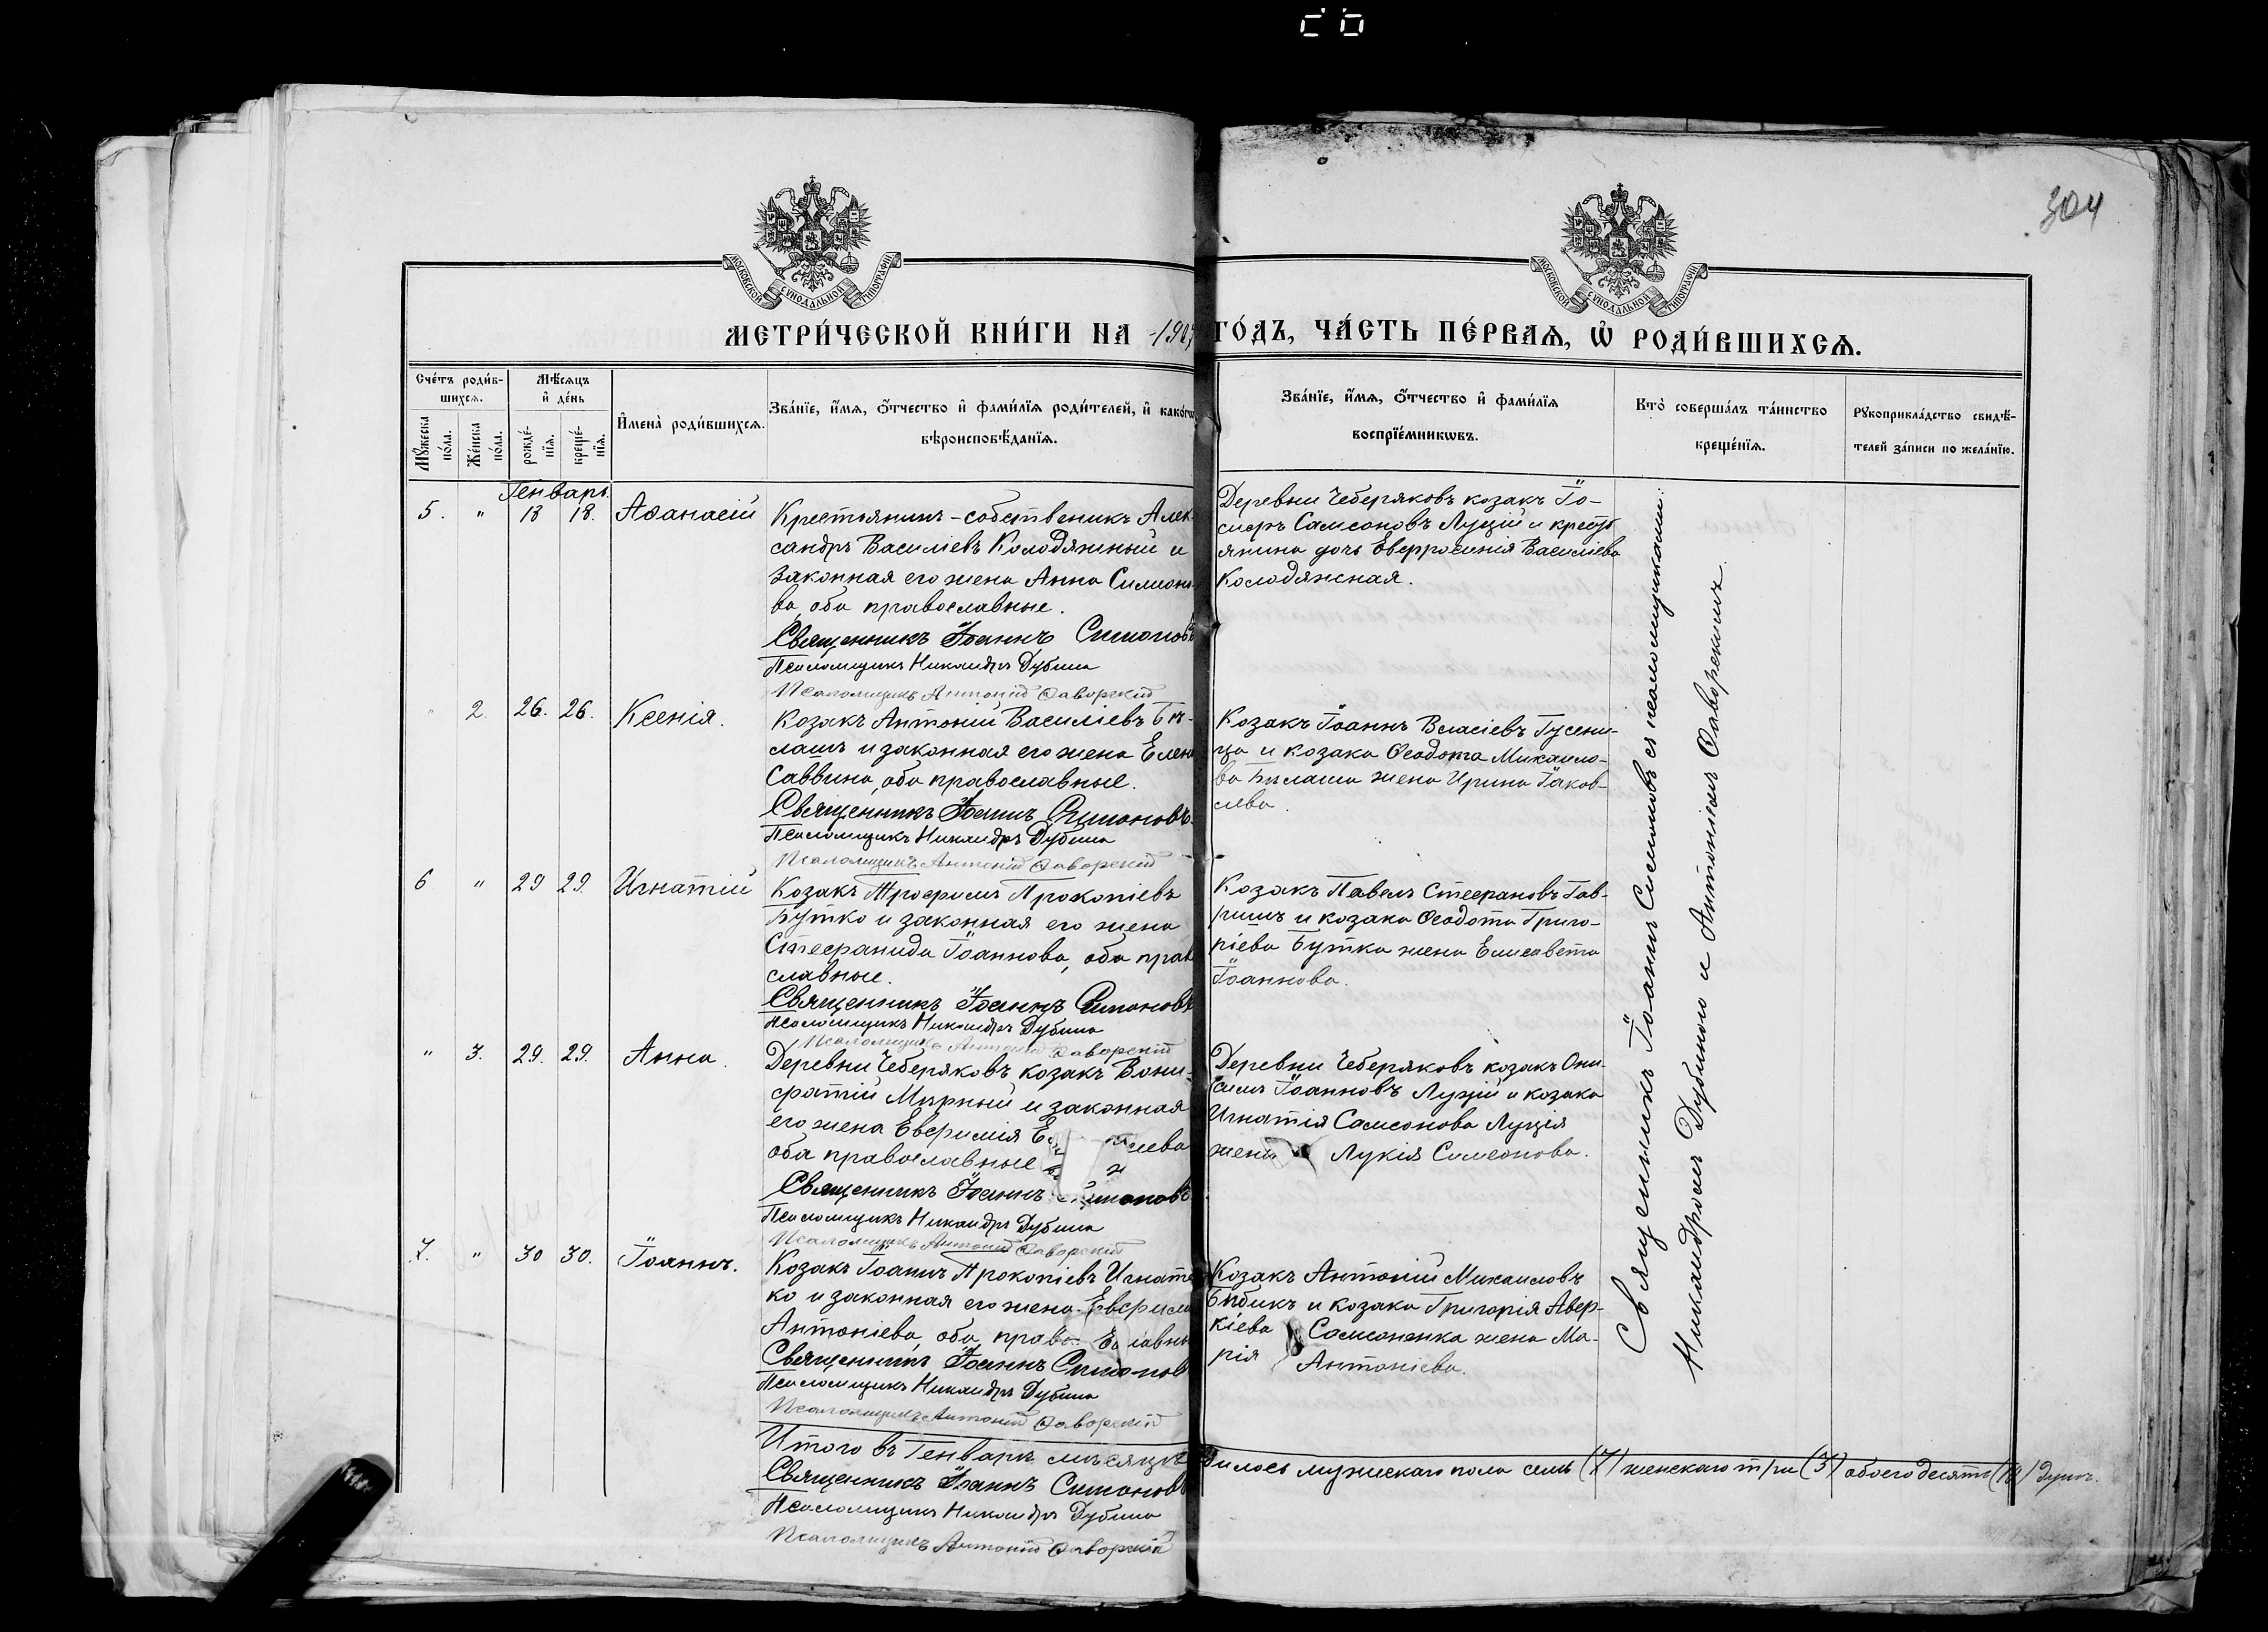 304
МОСКОВСКОЙ СѴНОДАЛЬНОЙ ТИПОГРАФІИ
МОСКОВСКОЙ СѴНОДАЛЬНОЙ ТИПОГРАФІИ
МЕТРИ́ЧЕСКОЙ КНИ́ГИ НА 1904 ГО́ДЪ, ЧА́СТЬ ПЕ́РВАѦ, Ѡ҆ РОДИ́ВШИХСѦ.
Сче́тъ роди́в-
шихсѧ.
Мꙋжеска по́ла.
Же́нска по́ла.
Мѣ́сѧцъ
и҆ де́нь
рожде́-
нїѧ.
креще́-
нїѧ.
И҆мена̀ роди́вшихсѧ.
Зва́нїе, и҆́мѧ, ѻ҆́тчество и҆ фами́лїѧ роди́телей, и҆ како́гѡ
вѣроисповѣ́данїѧ.
Зва́нїе, и҆́мѧ, ѻ҆́тчество и҆ фами́лїѧ
воспрїе́мникѡвъ.
Кто̀ соверша́лъ та́инство
креще́нїѧ.
Рꙋкоприкла́дство свидѣ́-
телей за́писи по жела́нїю.
Генварь.
5. " 18 18. Аѳанасій
Крестьянинъ-собственикъ Алек-
сандръ Василіевъ Колодяжный и
законная его жена Анна Симеоно-
ва, оба православные.
Священникъ Іоаннъ Симоновъ
Псаломщикъ Никандръ Дубина
Псаломщикъ Антоній Яворскій
Деревни Чеберяковъ козакъ Іо-
сифъ Самсоновъ Луцій и кресть
янина дочь Евфросинія Василіева
Колодяжная.
" 2. 26. 26. Ксенія.
Козакъ Антоній Василіевъ Бѣ-
лашъ и законная его жена Елена
Саввина, оба православные.
Священникъ Іоаннъ Симоновъ
Псаломщикъ Никандръ Дубина
Псаломщикъ Антоній Яворскій
Козакъ Іоаннъ Власіевъ Гусени-
ца и козака Ѳеодота Михаило-
ва Бѣлаша жена Ирина Іаков-
лева.
6 " 29 29. Игнатій
Козакъ Трофимъ Прокопіевъ
Бутко и законная его жена
Стефанида Іоаннова, оба право
славные.
Священникъ Іоаннъ Симоновъ
Псаломщикъ Никандръ Дубина
Псаломщикъ Антоній Яворскій
Козакъ Павелъ Стефановъ Гав-
ришъ и козака Ѳеодота Григо-
ріева Бутка жена Елисавета
Іоаннова.
" 3. 29. 29. Анна.
Деревни Чеберяковъ козакъ Вони-
фатій Мирный и законная
его жена Евфимія
оба православные
Священникъ Іоаннъ Симоновъ
Псаломщикъ Никандръ Дубина
Псаломщикъ Антоній Яворскій
Деревни Чеберяковъ козакъ Они-
симъ Іоанновъ Луцій и козака
Игнатія Самсонова Луція
жена Лукія Симеонова.
7. " 30 30. Іоаннъ.
Козакъ Іоаннъ Прокопіевъ Игнатен
ко и законная его жена Евфимія
Антоніева, оба православные
Священникъ Іоаннъ Симоновъ
Псаломщикъ Никандръ Дубина
Псаломщикъ Антоній Яворскій
Козакъ Антоній Михаиловъ
Бибикъ и козака Григорія Авер-
кіева Самсоненка жена Ма-
рія Антоніева.
Священникъ Іоаннъ Симоновъ съ псаломщиками:
Никандромъ Дубиною и Антоніемъ Яворскимъ.
Итого въ Генварѣ мѣсяцѣ родилось мужескаго пола семь (7) женскаго три (3) обоего десять (10) душъ.
Священникъ Іоаннъ Симоновъ
Псаломщикъ Никандръ Дубина
Псаломщикъ Антоній Яворскій